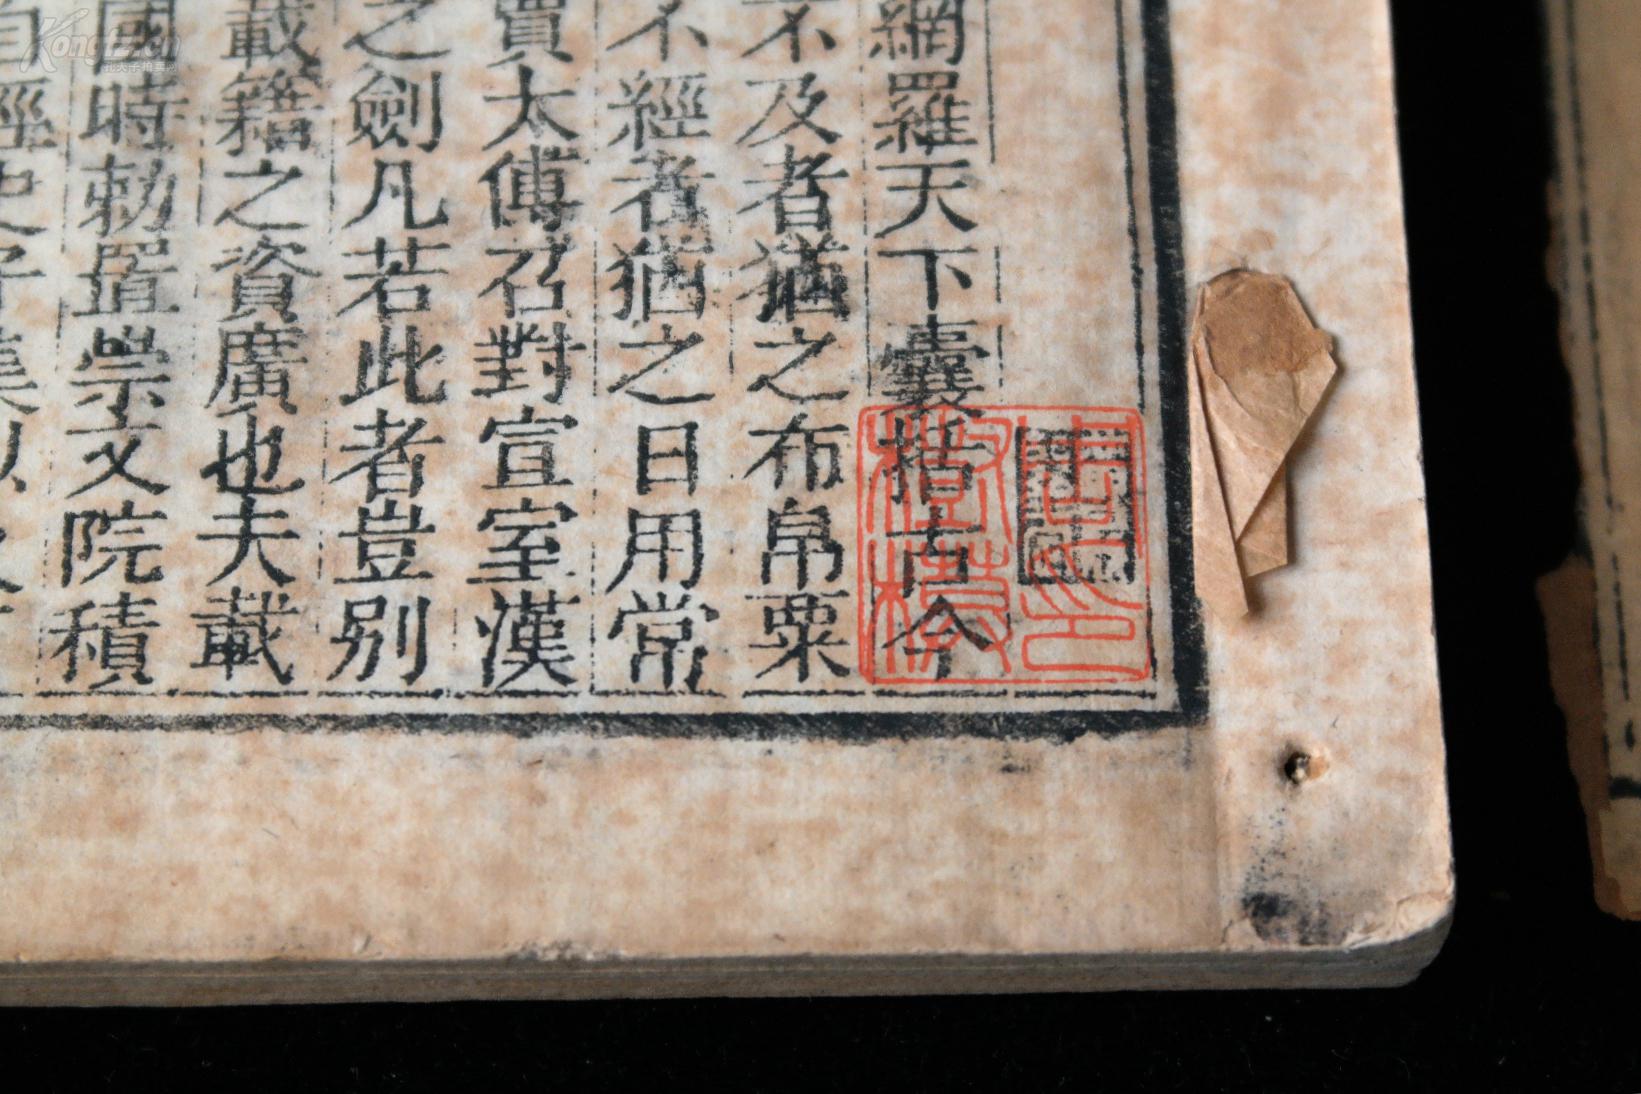 網羅天下囊括古今
不及者猶之布帛粟
不經者猶之日用常
賈太傅召對宣室漢
之劍凡若此者豈別
載籍之資廣也夫載
國時勅置崇文院積
經史子集以
Kongfz.cn
孔夫子拍卖网